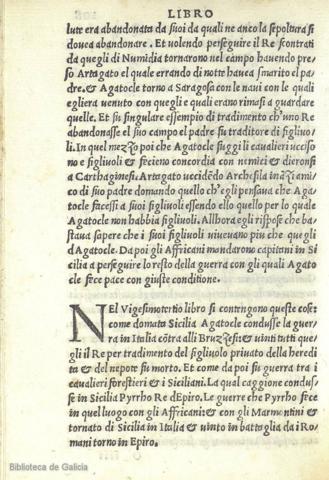 LIBRO
lute era abandonata da suoi da quali ne anco la sepoltura si
dovea abandonare. Et volendo perseguire il Re scontrati
da quegli di Numidia tornarono nel campo havendo pre-
so Artagato el quale errando di notte havea smarito el pa
dre, & Agatocle torno a Saragosa con le navi con le quali
egli era venuto con quegli e quali erano rimasi a guardare
quelle. Et fu singulare essempio di tradimento ch'uno Re
abandonasse el suo campo el padre fu traditore di figliuo-
li. In quel mezzo poi che Agatocle fuggi li cavallieri ucciso
no e figliuoli & fecieno concordia con nemici & dieronsi
a Carthaginesi. Artagato uccidēdo Archesila inãzi amico
di suo padre domando quello ch'egli pensava che Aga
tocle facessi a suoi figliuoli essendo ello quello per lo quale
Agatocle non habbia figliuoli. Allhora egli rispose che ba-
stava sapere che i suoi figliuoli viuevano piu che quegli
d'Agatocle. Da poi gli Affricani mondarono capitani in Si
cilia a perseguire lo resto della guerra con gli quali Agato
cle fece pace con giuste conditione.
NEl Vigesimotertio libro si contengono queste cose:
come domata Sicilia Agatocle condusse la guer
ra in Italia cōtra alli Bruzzesi: & vinti tutti que
gli il Re per tradimento del figliuolo privato della heredi
ta & del nepote su morto. Et come da poi su guerra tra i
cavalieri forestieri & i Siciliani. La qual caggione condus-
se in Sicilia Pyrrho Re d'Epiro. Le guerre che Pyrrho fece
in quel luogo con gli Affricani: & con gli Marmontini &
tornato di Sicilia in Italia & vinto in battaglia da i Ro
mani torno in Epiro.
Biblioteca de Galicia